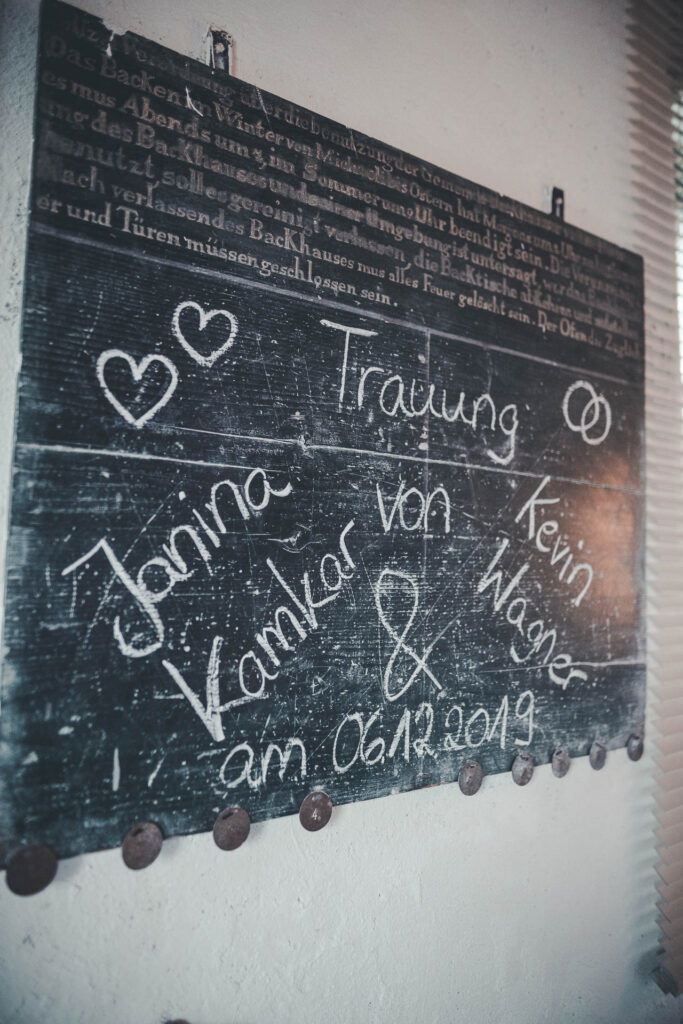 die benutzung der
Das Backen im Winter von Michaelis bis Ostern hat
es mus Abends um im Sommer um 9 Uhr beendigt sein. Die
ung des Backhauses und seiner Umgebung ist untersagt, wer das
benutzt, soll es gereinigt verlassen, die Backtische
Nach verlassendes BacKhauses mus alles Feuer gelöscht sein. Der Ofen die
er und Türen müssen geschlossen sein.
Trauung
Janina Kamkar
von
&
Kevin Wagner
am 06.12.2019
4